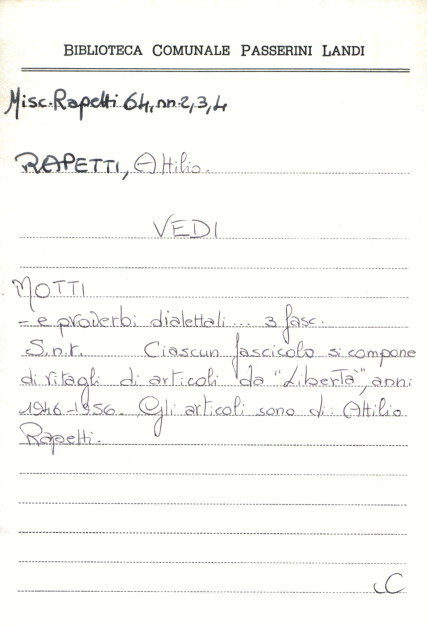 BIBLIOTECA COMUNALE PASSERINI LANDI
Misc. Rapetti 64, nn. 2, 3, 4
RAPETTI, Attilio.
VEDI
MOTTI
- e proverbi dialettali... 3 fasc.
S.n.t. Ciascun fascicolo si compone
di ritagli di articoli da "Libertà", anni
1946-1956. Gli articoli sono di Attilio
Rapetti.
C